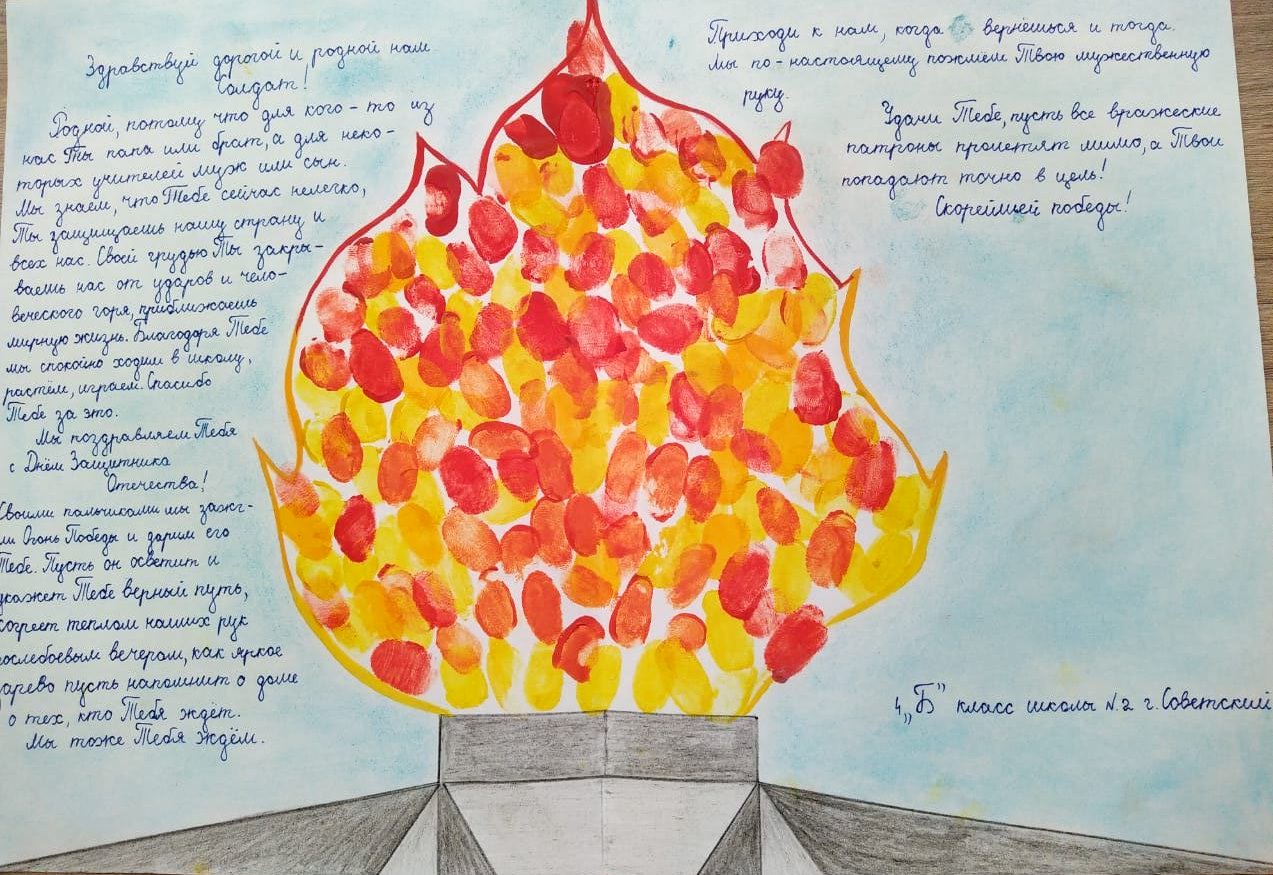 Здравствуй дорогой и родной нам
Солдат!
Родной, потому что для кого-то из
нас Ты папа или брат, а для неко-
торых учителей муж или сын.
Мы знаем, что Тебе сейчас нелегко,
Ты защищаешь нашу страну и
всех нас. Своей грудью Ты закры-
ваешь нас от ударов и чело-
веческого горя, приближаешь
мирную жизнь. Благодаря Тебе
мы спокойно ходим в школу,
растём, играем. Спасибо
Тебе за это.
Мы поздравляем Тебя
с Днём Защитника
Отечества!
Своими пальчиками мы зажг-
ли Огонь Победы и дарим его
Тебе. Пусть он осветит и
укажет Тебе верный путь,
согреет теплом наших рук
послебоевым вечером, как яркое
зарево пусть напомнит о доме
о тех, кто Тебя ждёт.
Мы тоже Тебя ждём.
Приходи к нам, когда вернёшься и тогда
мы по-настоящему пожмём Твою мужественную
руку.
Удачи Тебе, пусть все вражеские
патроны пролетят мимо, а Твои
попадают точно в цель!
Скорейшей победы!
4 „Б" класс школы №2 г. Советский